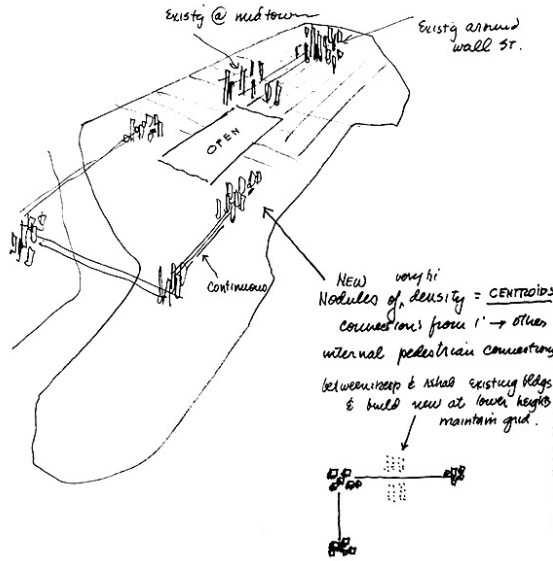 Existg @ midtown
Existg around
wall St.
OPEN
Continuous
NEW very hi
Nodules of ^ density = CENTROIDS
connections from 1 → other
internal pedestrian connections
between: keep & rehab existing bldgs
& build new at lower heights
maintain grid.